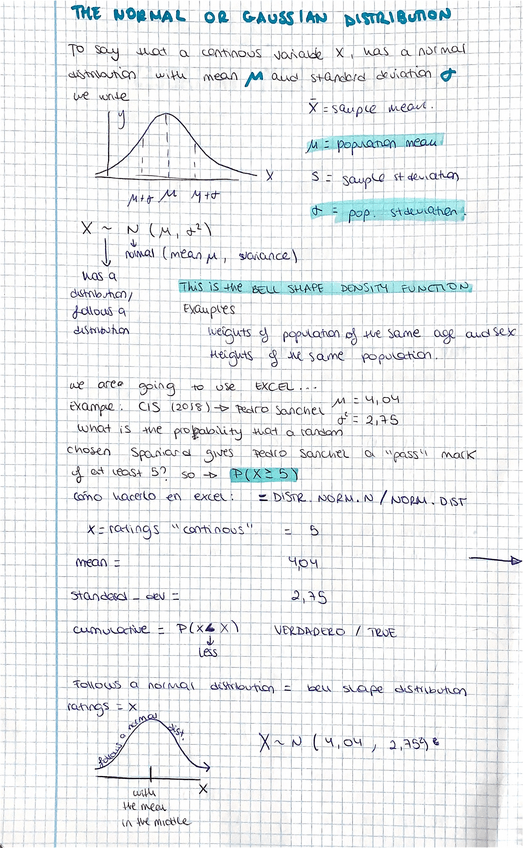 THE NORMAL OR GAUSSIAN DISTRIBUTION
To say that a continous variable X, has a normal
distribution with mean μ and standard deviation σ
we write
X̄ = sample mean.
y
μ = population mean
X
S = sample st deviation
μ+σ μ μ+σ
σ = pop. st deviation.
X ~ N (μ, σ²)
normal (mean μ, variance)
has a
distribution/
follows a
distribution
This is the BELL SHAPE DENSITY FUNCTION
Examples
Weights of population of the same age and sex
Heights of the same population.
we are going to use EXCEL...
Example: CIS (2018) → Pedro Sanchez μ = 4,04
σ = 2,75
what is the probability that a random
chosen Spaniard gives Pedro Sanchez a "pass" mark
of at least 5? so → P(X ≥ 5)
cómo hacerlo en excel: = DISTR. NORM. N / NORM. DIST
X = ratings "continous" = 5
mean = 4,04
standard_dev = 2,75
cumulative = P(X ≤ X) VERDADERO / TRUE
less
Follows a normal distribution = bell shape distribution
ratings = X
follows a normal dist.
X ~ N (4,04, 2,75)²
X
with
the mean
in the middle